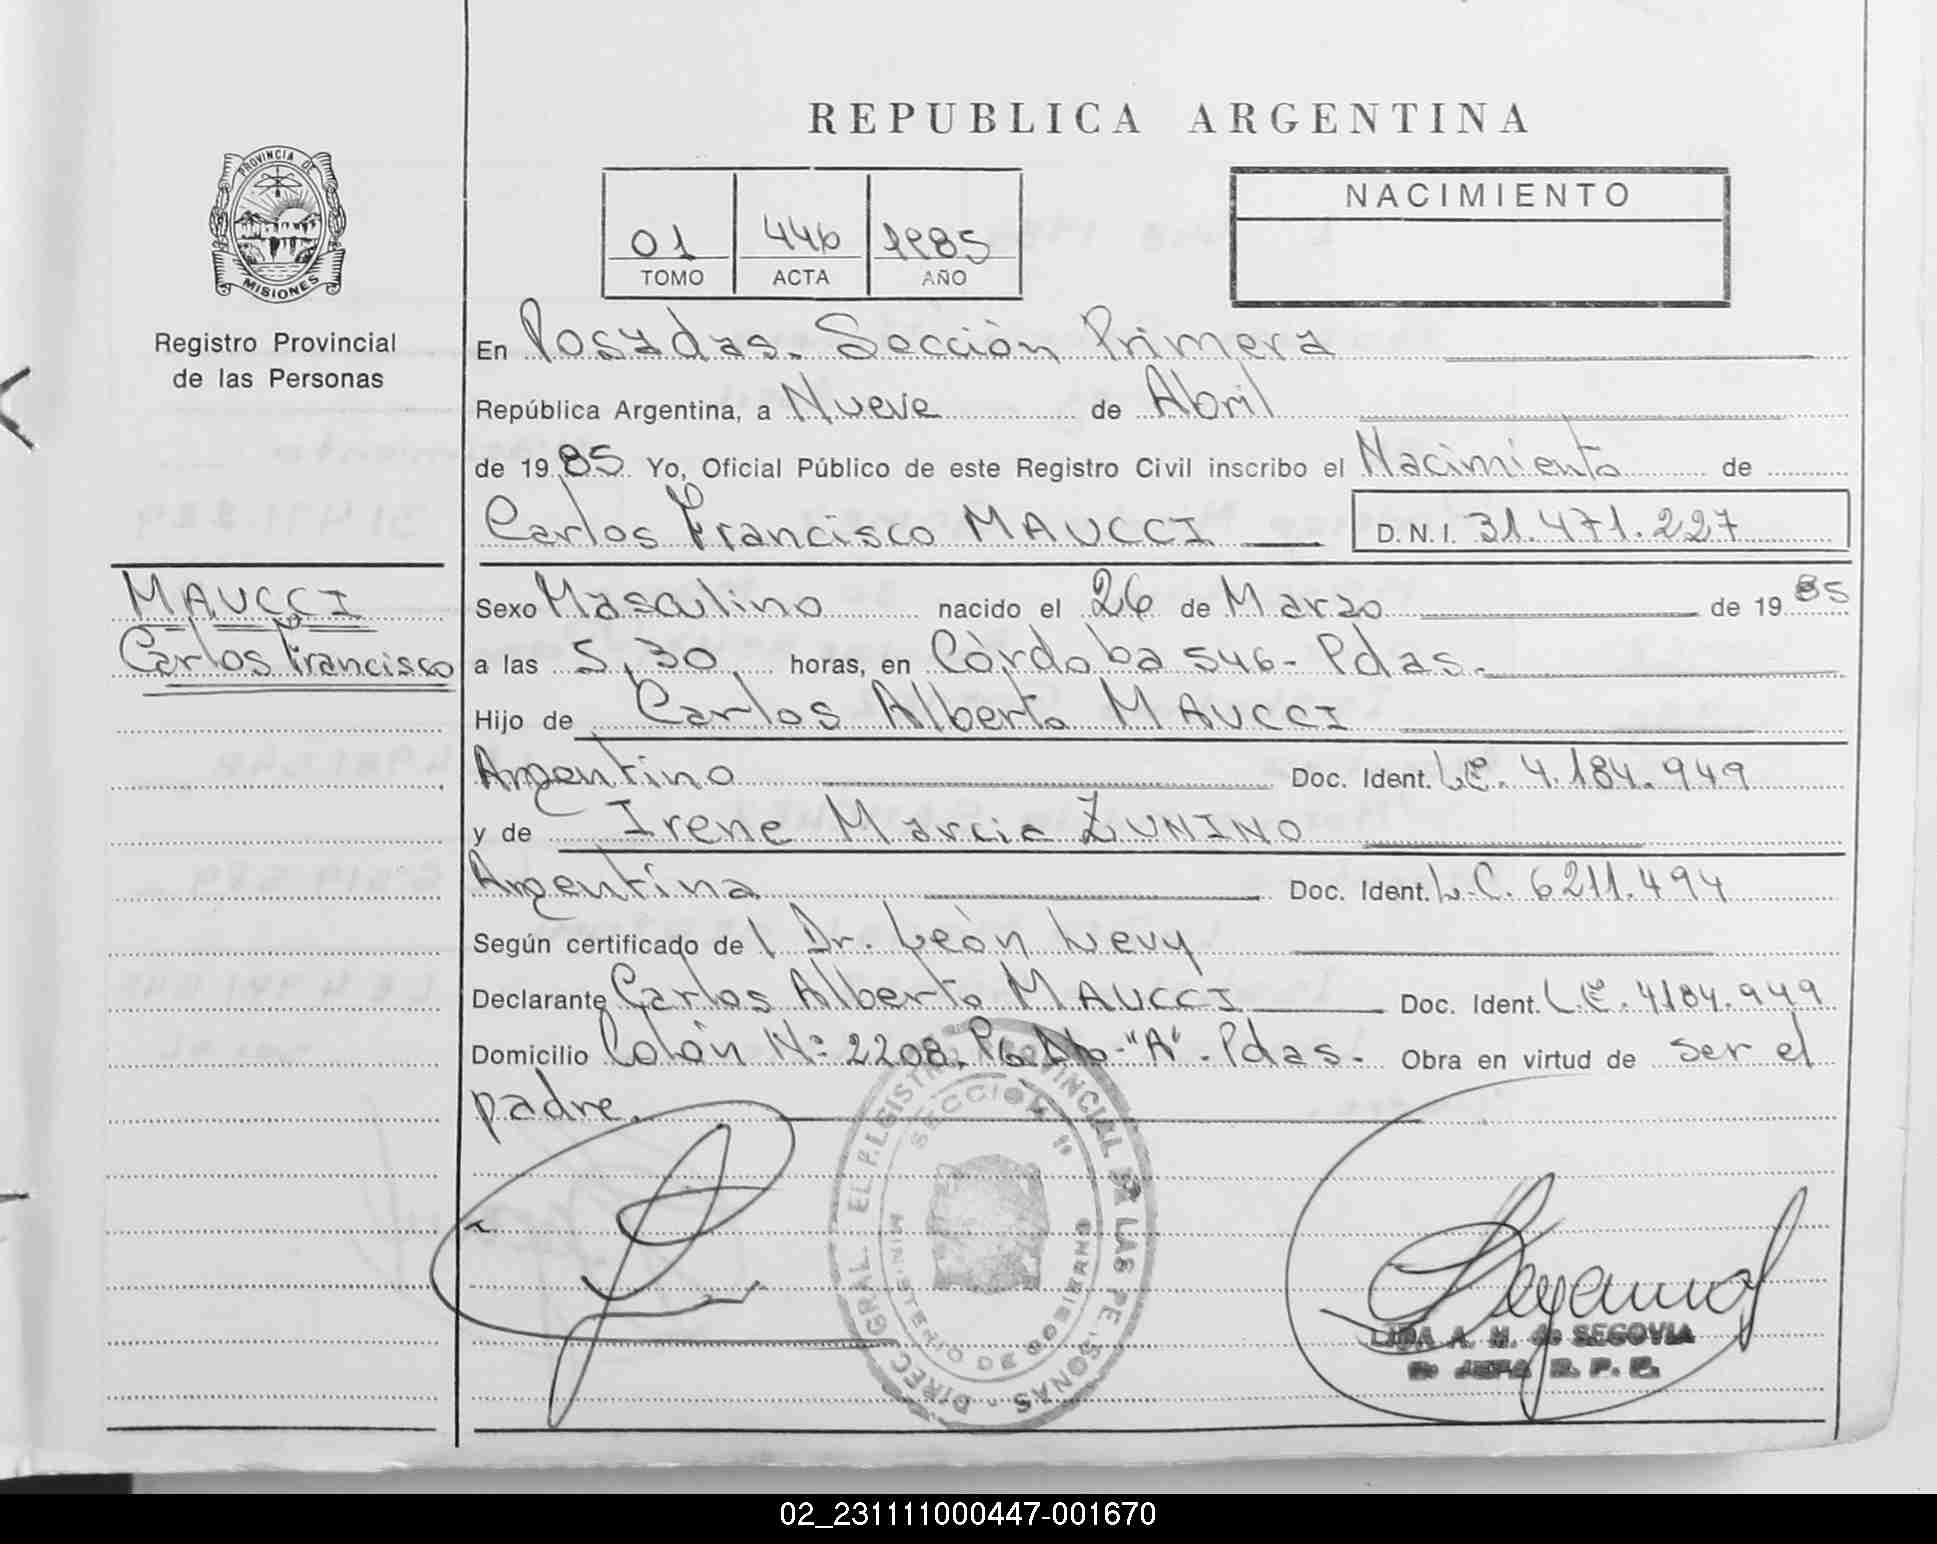 REPUBLICA ARGENTINA
PROVINCIA DE
MISIONES
Registro Provincial
de las Personas
01 446 1985
TOMO ACTA AÑO
NACIMIENTO
En Posadas. Sección Primera
República Argentina, a Nueve de Abril
de 1985 Yo, Oficial Público de este Registro Civil inscribo el Nacimiento de
Carlos Francisco MAUCCI D.N.I. 31.471.227
MAUCCI
Carlos Francisco
Sexo Masculino nacido el 26 de Marzo de 1985
a las 5,30 horas, en Córdoba 546- Pdas.
Hijo de Carlos Alberto MAUCCI
Argentino Doc. Ident. L.E. 4.184.949
y de Irene Marcia ZUNINO
Argentina Doc. Ident. L.C. 6211.494
Según certificado del Dr. León Levy
Declarante Carlos Alberto MAUCCI Doc. Ident. L.E. 4184.949
Domicilio Colón Nº 2208, "A". Pdas. Obra en virtud de ser el
padre.
SECCION 1ª
MINISTERIO DE GOBIERNO
LIDA A. M. de SEGOVIA
JEFA R. P. P.
02_231111000447-001670